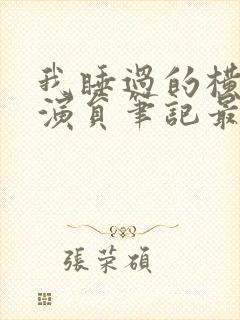 我睡過的橫
演員筆記最
張荣碩